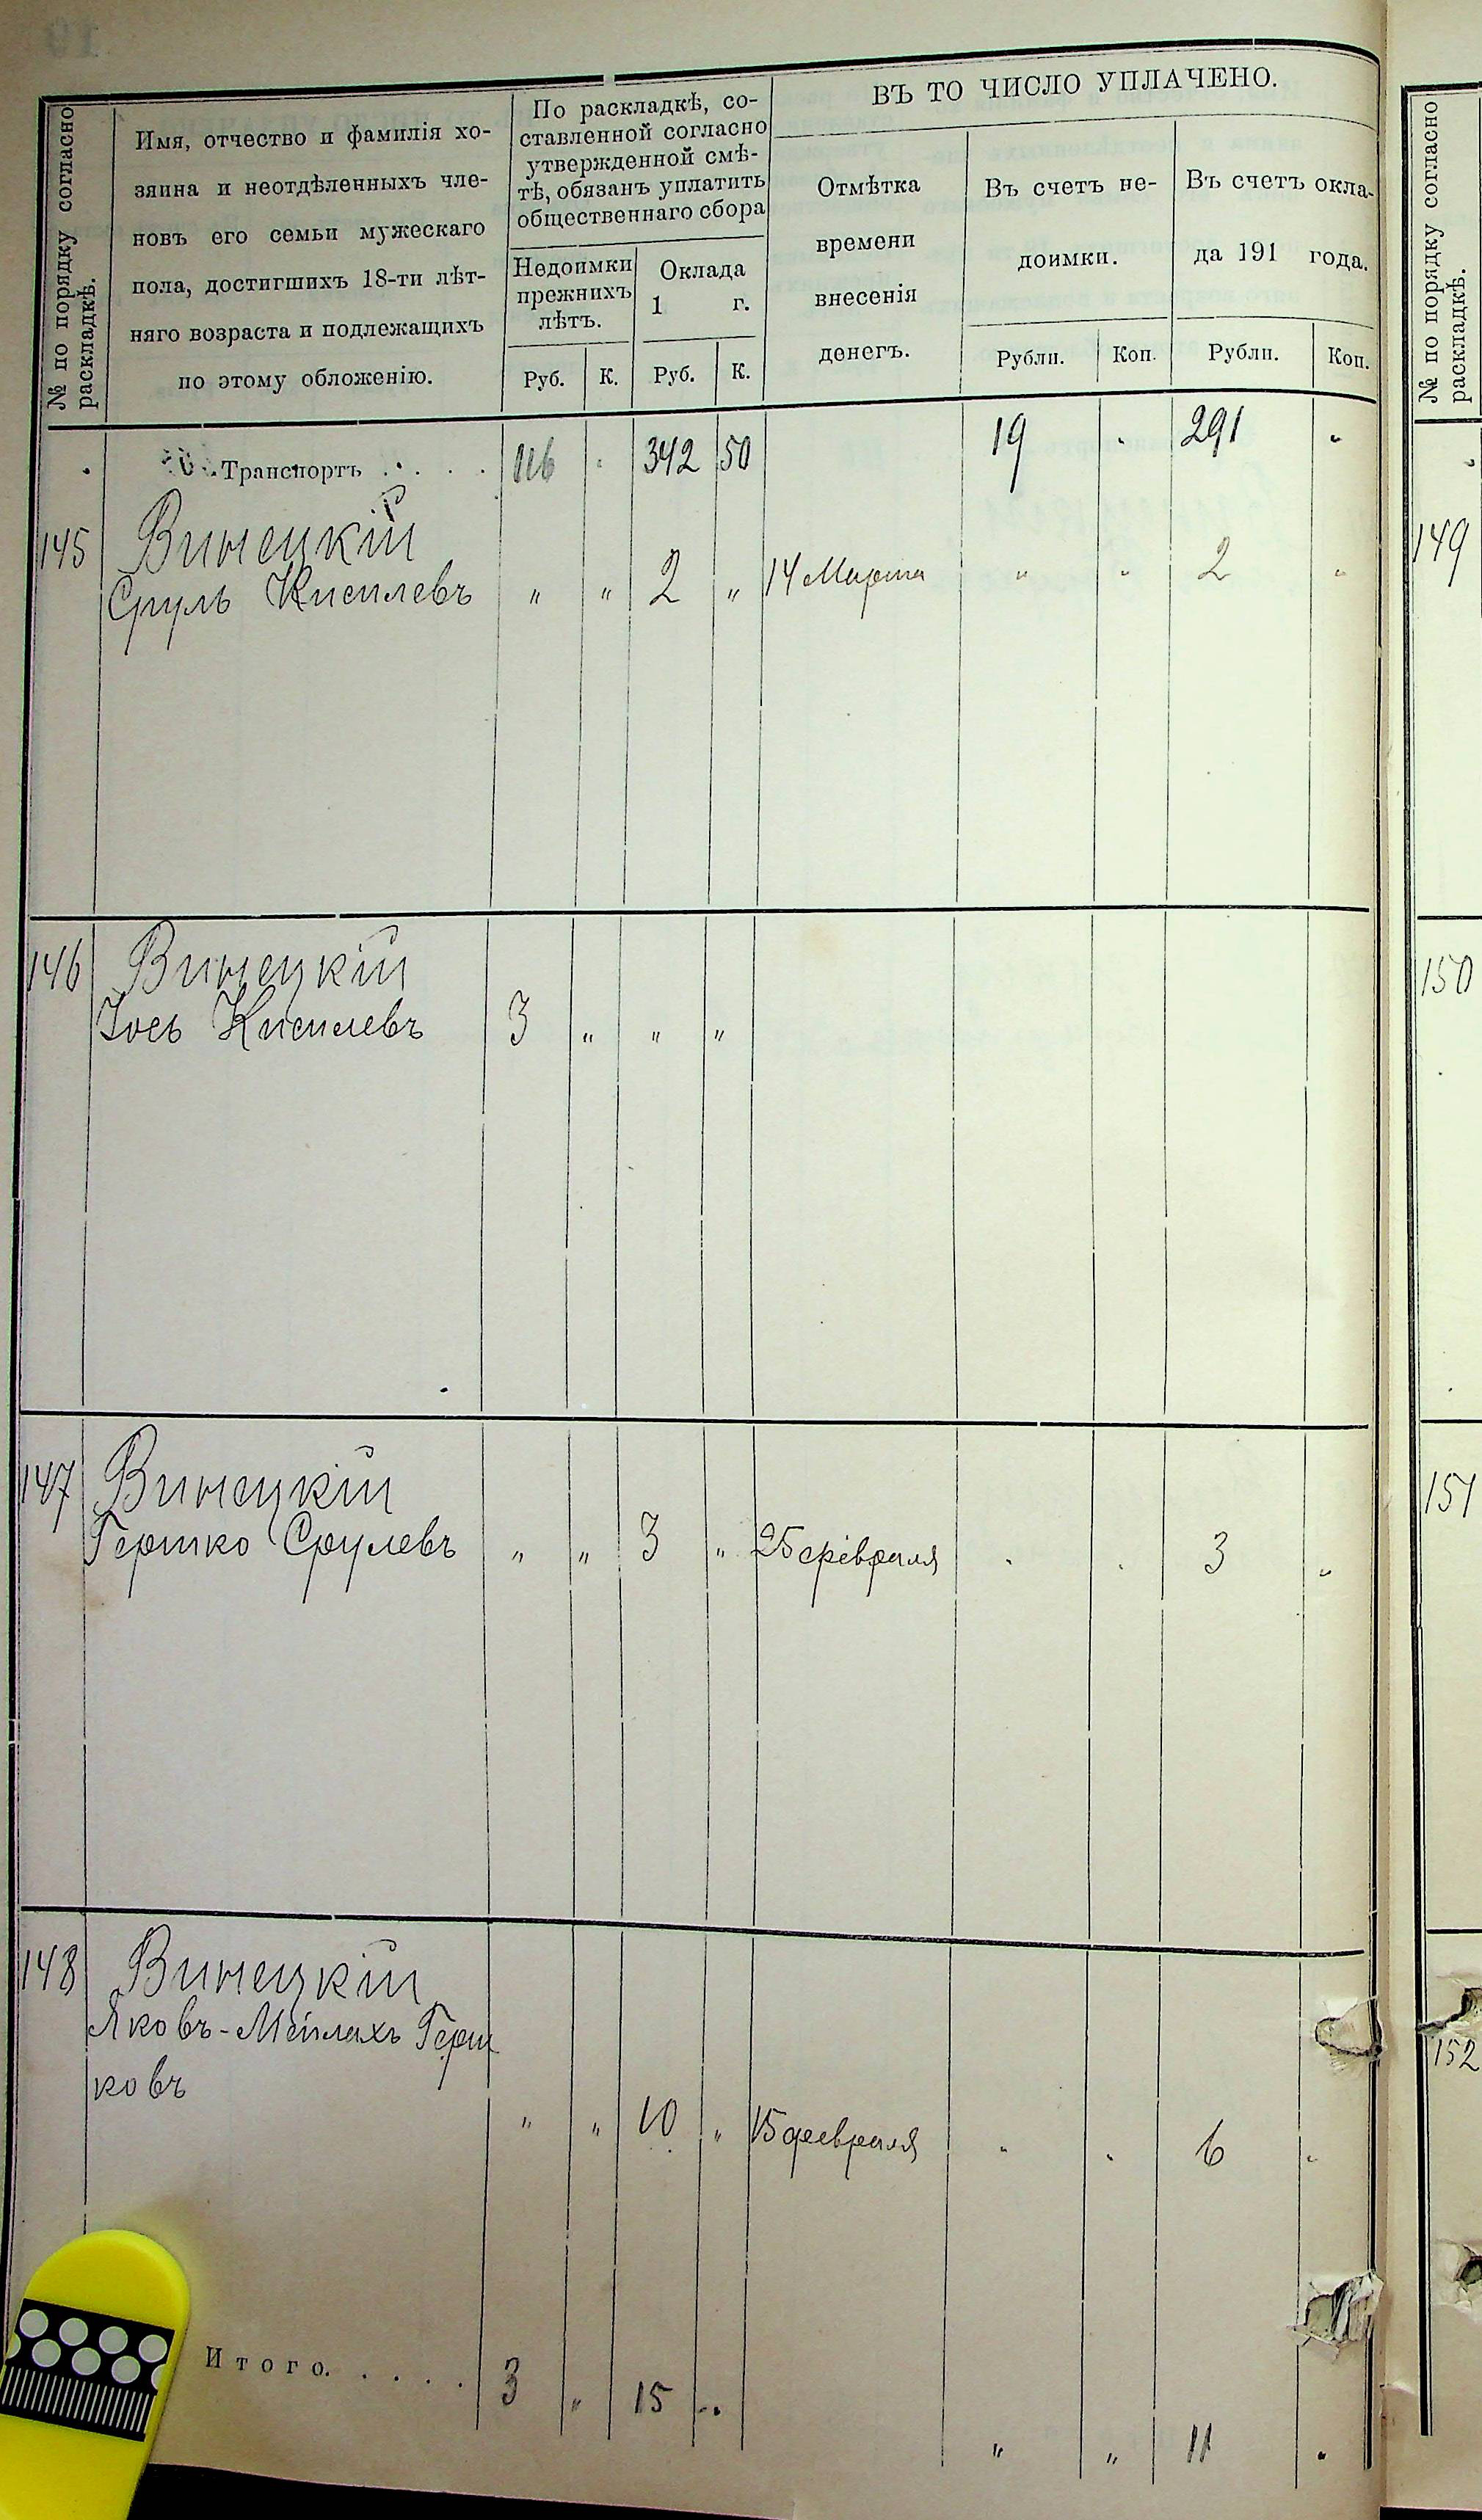 № по порядку согласно
раскладкѣ.
Имя, отчество и фамилія хо-
зяина и неотдѣленныхъ чле-
новъ его семьи мужескаго
пола, достигшихъ 18-ти лѣт-
няго возраста и подлежащихъ
по этому обложенію.
По раскладкѣ, со-
ставленной согласно
утвержденной смѣ-
тѣ, обязанъ уплатить
общественнаго сбора
Недоимки
прежнихъ
лѣтъ.
Оклада
1 г.
Руб. К. Руб. К.
ВЪ ТО ЧИСЛО УПЛАЧЕНО.
Отмѣтка
времени
внесенія
денегъ.
Въ счетъ не-
доимки.
Въ счетъ окла-
да 191 года.
Рубли. Коп. Рубли. Коп.
Транспортъ . . . . 116 " 342 50 19 " 291 "
145 Винецкій
Сруль Кисилевъ " " 2 " 14 Марта " " 2 "
146 Винецкій
Іось Кисилевъ 3 " " "
147 Винецкій
Гершко Срулевъ " " 3 " 25 февраля " " 3 "
148 Винецкій
Яковъ-Мейлахъ Герш
ковъ
" " 10 " 15 февраля " " 6 "
Итого. . . . . 3 " 15 " " " 11 "
№ по порядку согласно
раскладкѣ.
149
150
151
152